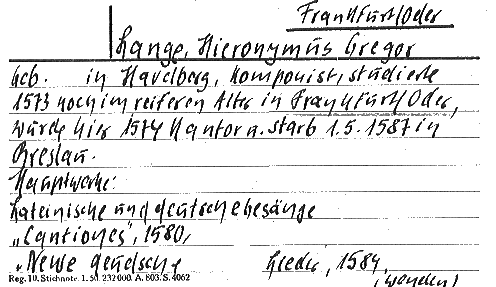 Frankfurt/Oder
Lange, Hieronymus Gregor
Geb. in Havelberg, Komponist, studierte
1573 noch im reiferen Alter in Frankfurt/Oder,
wurde hier 1574 Kantor u. starb 1.5.1587 in
Breslau.
Hauptwerke:
Lateinische und deutsche Gesänge
„Cantiones", 1580,
„Newe deudsche Lieder, 1584,
(wenden)
Reg. 10. Stichnote. 1. 50. 232000. A. 803. S. 4062